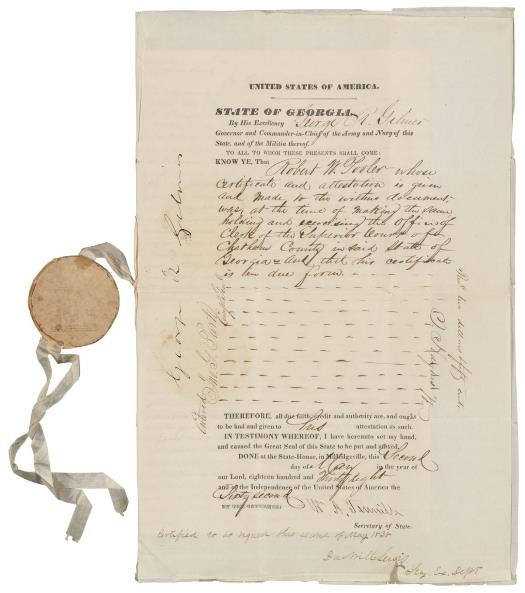 UNITED STATES OF AMERICA.
STATE OF GEORGIA.
By His Excellency George R. Gilmer
Governor and Commander-in-Chief of the Army and Navy of this
State, and of the Militia thereof.
TO ALL TO WHOM THESE PRESENTS SHALL COME:
KNOW YE, That Robert W. Pooler whose
certificate and attestation is given
and made to the within document
was, at the time of making the same
holding and exercising the office of
Clerk of the Superior Court of
Chatham County in said State of
Georgia and that his certificate
is in due form
THEREFORE, all due faith, credit and authority are, and ought
to be had and given to his attestation as such.
IN TESTIMONY WHEREOF, I have hereunto set my hand,
and caused the Great Seal of this State to be put and affixed.
DONE at the State-House, in Milledgeville, this Second
day of May in the year of
our Lord, eighteen hundred and Thirty eight
and of the Independence of the United States of America the
Sixty second
BY THE GOVERNOR:
Secretary of State.
Certified to as signed this second of May 1838
Sey. Ex. Dept
George R Gilmer